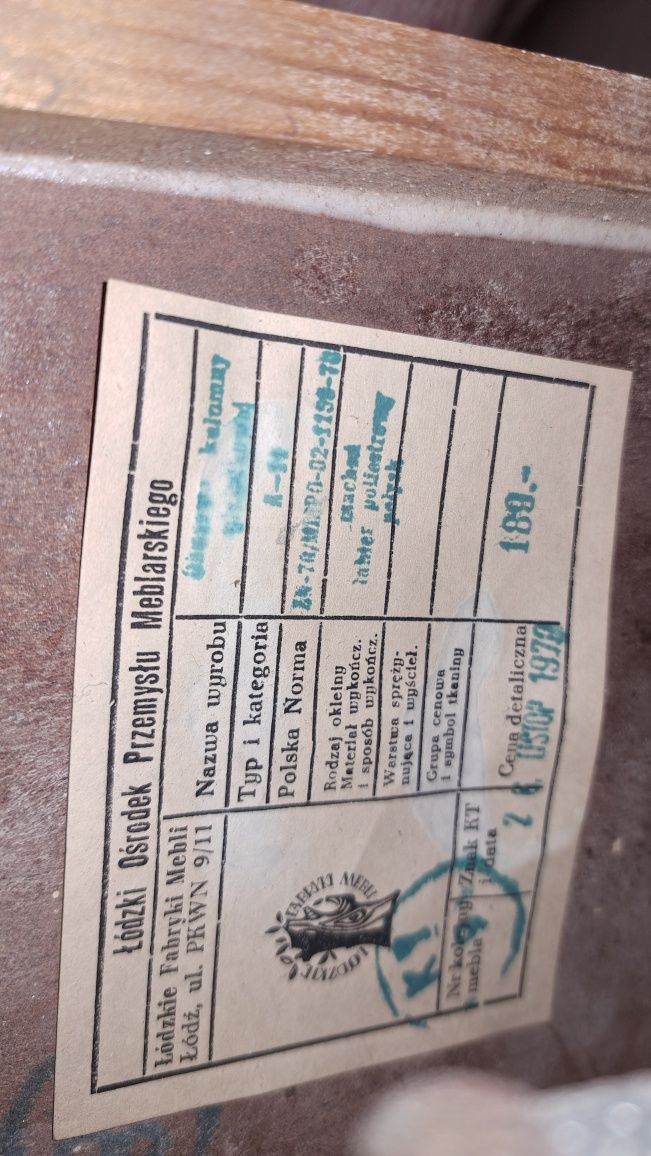 Łódzki Ośrodek Przemysłu Meblarskiego
Łódzkie Fabryki Mebli
Łódź, ul. PKWN 9/11
ŁÓDZKIE FABRYKI MEBLI
Nazwa wyrobu
kolumny
Typ i kategoria
Polska Norma
Rodzaj okleiny
Materiał wykończ.
i sposób wykończ.
lakier poliestrowy
połysk
Warstwa spręży-
nująca i wyściel.
Grupa cenowa
i symbol tkaniny
Nr kolejny
mebla
Znak KT
i data
KT
Cena detaliczna
180.-